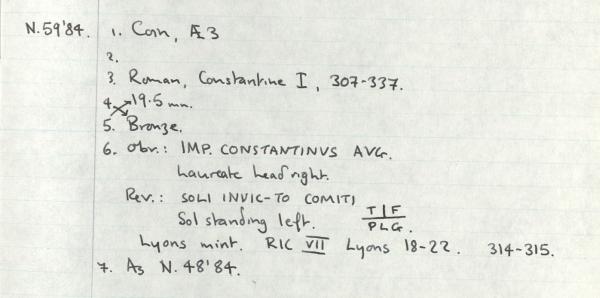 N.59'84. 1. Coin, Æ3
2.
3. Roman, Constantine I, 307-337.
4. 19.5 mm.
5. Bronze.
6. Obv.: IMP. CONSTANTINVS AVG.
Laureate head right.
Rev.: SOLI INVIC-TO COMITI
Sol standing left. T|F
PLG.
Lyons mint. RIC VII Lyons 18-22. 314-315.
7. As N.48'84.